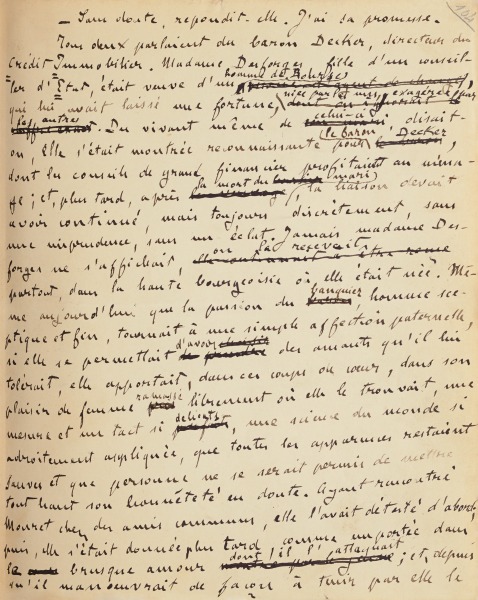 — Sans doute, répondit-elle. J'ai sa promesse.
Tous deux parlaient du baron Decker, directeur du
Crédit Immobilier. Madame Desforges, fille d'un conseil-
homme de Bourse
ler d'Etat, était veuve d'un
niée par les uns, exagérée par
qui lui avait laissé une fortune,
les autres
celui-ci
. Du vivant même de disait-
le baron Decker
on, elle s'était montrée reconnaissante pour ,
dont les conseils de grand financier profitaient au ména-
la mort du mari
ge ; et, plus tard, après , la liaison devait
avoir continué, mais toujours discrètement, sans
une imprudence, sans un éclat. Jamais madame Des-
on la recevait
forges ne s'affichait,
partout, dans la haute bourgeoisie où elle était née. Mê-
banquier
me aujourd'hui que la passion du , homme sce-
ptique et fin, tournait à une simple affection paternelle,
d'avoir
si elle se permettait des amants qu'il lui
tolérait, elle apportait, dans ces coups de cœur,
plaisir de femme librement où elle le trouvait, une
délicats
mesure et un tact si , une science du monde si
adroitement appliquée, que toutes les apparences restaient
sauves et que personne ne se serait permis de mettre
tout haut son honnêteté en doute. Ayant rencontré
Mouret chez des amis communs, elle l'avait détesté d'abord ;
puis, elle s'était donnée plus tard, comme emportée dans
dont il l'attaquait
le brusque amour ; et, depuis
qu'il manœuvrait de façon à tenir par elle le